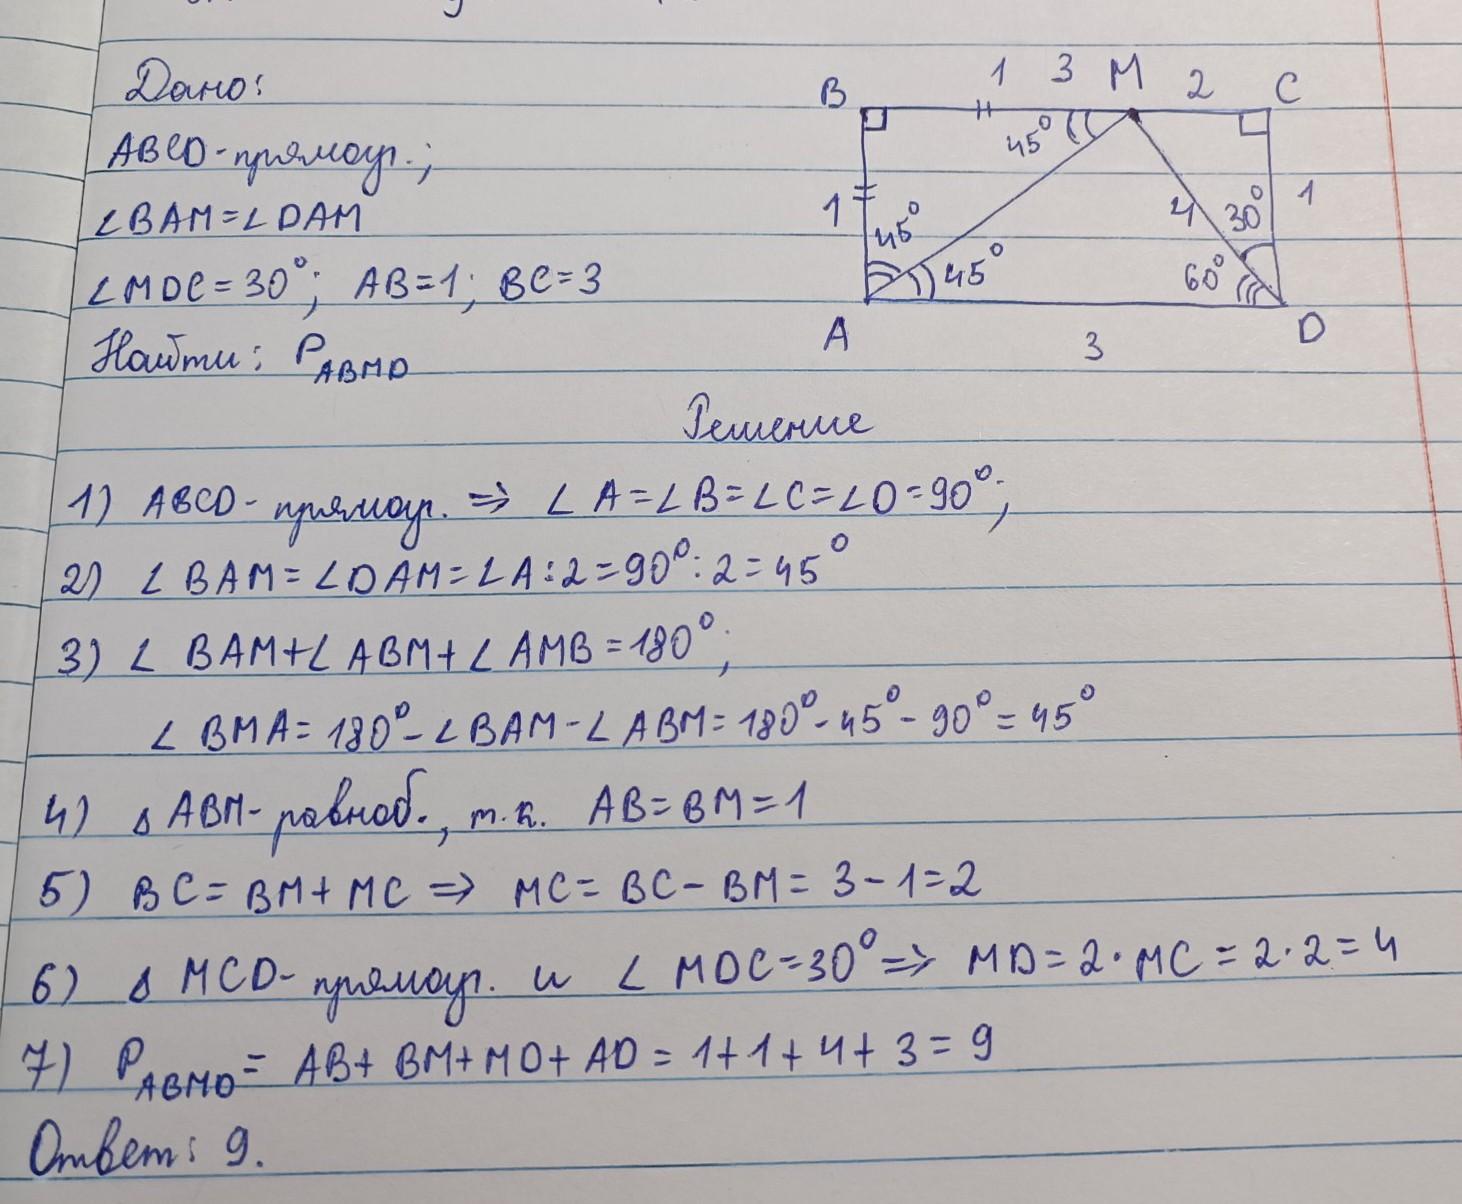 Дано:
ABCD-прямоуг.;
∠BAM=∠DAM
∠MDC=30°; AB=1; BC=3
Найти: P_ABMD
B 1 3 M 2 C
45°
1 45° 4 30° 1
45° 60°
A 3 D
Решение
1) ABCD-прямоуг. ⇒ ∠A=∠B=∠C=∠D=90°;
2) ∠BAM=∠DAM=∠A:2=90°:2=45°
3) ∠BAM+∠ABM+∠AMB=180°;
∠BMA=180°-∠BAM-∠ABM=180°-45°-90°=45°
4) Δ ABM-равноб., т.к. AB=BM=1
5) BC=BM+MC ⇒ MC=BC-BM=3-1=2
6) Δ MCD-прямоуг. и ∠MDC=30° ⇒ MD=2·MC=2·2=4
7) P_ABMD=AB+BM+MD+AD=1+1+4+3=9
Ответ: 9.